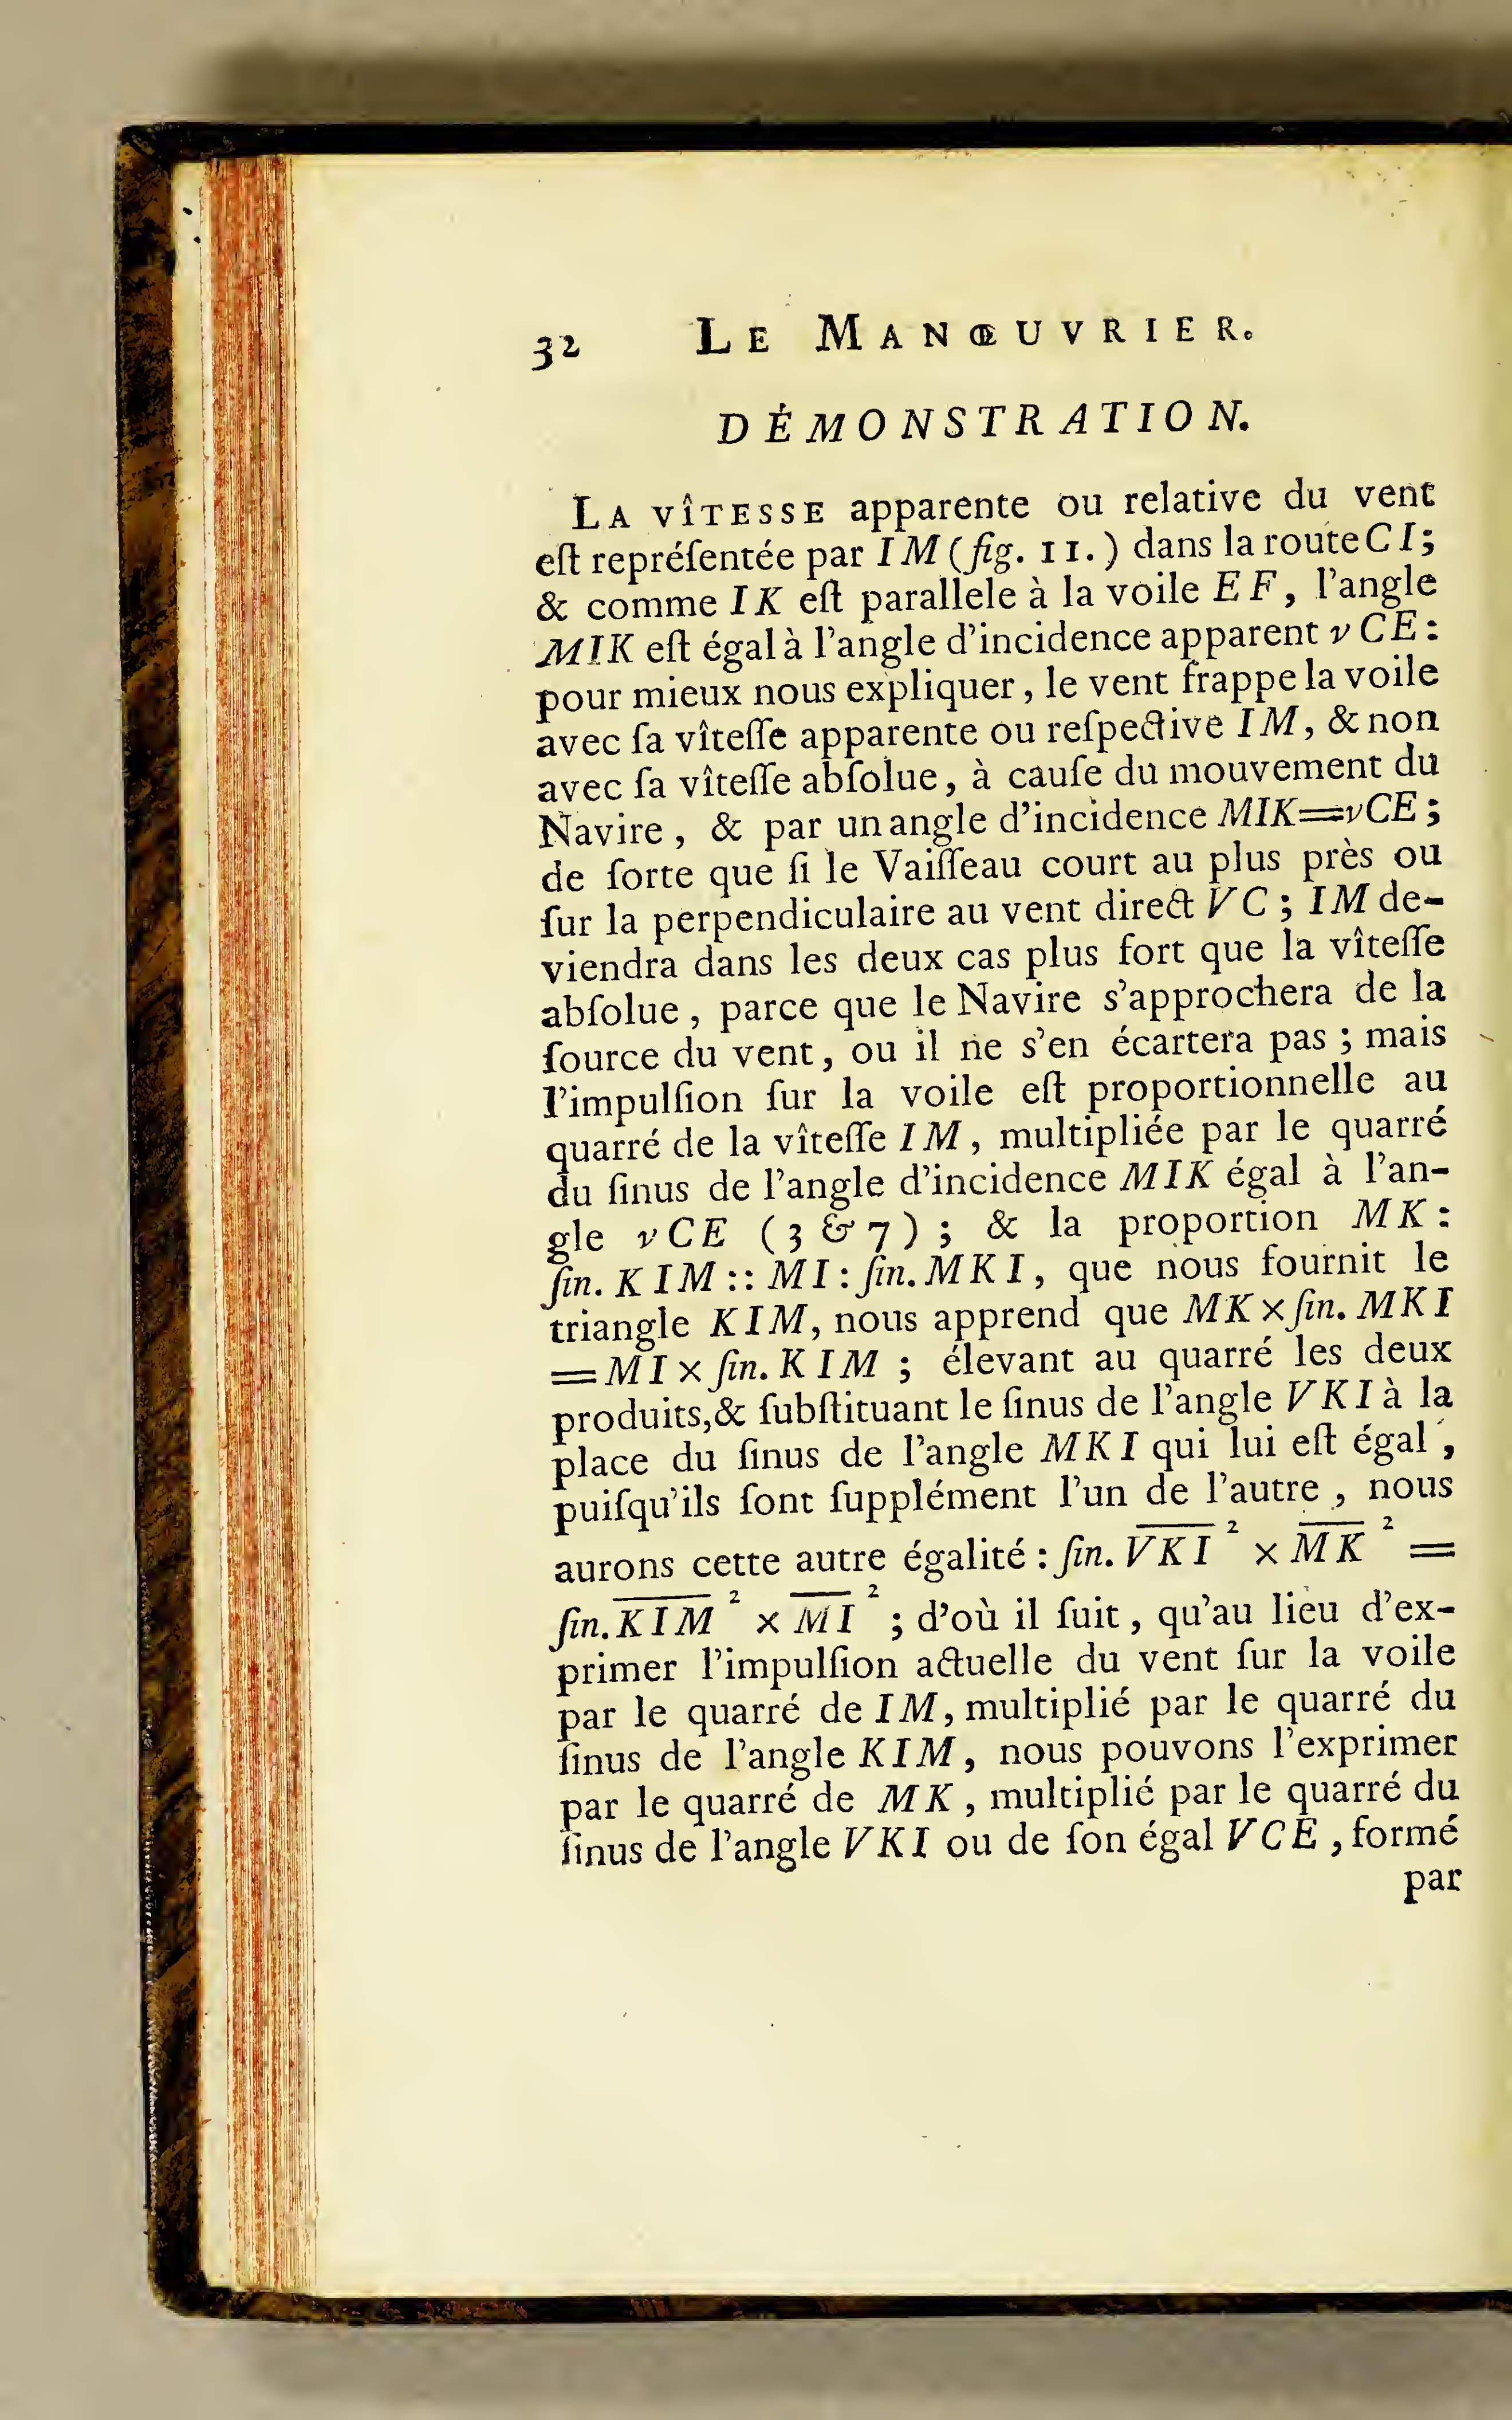 32 LE MANŒUVRIER.
DÉMONSTRATION.
LA VÎTESSE apparente ou relative du vent
eſt repréſentée par IM (fig. 11.) dans la route CI;
& comme IK eſt parallele à la voile EF, l'angle
MIK eſt égal à l'angle d'incidence apparent vCE:
pour mieux nous expliquer, le vent frappe la voile
avec ſa vîteſſe apparente ou reſpective IM, & non
avec ſa vîteſſe abſolue, à cauſe du mouvement du
Navire, & par un angle d'incidence MIK=vCE;
de ſorte que ſi le Vaiſſeau court au plus près ou
ſur la perpendiculaire au vent direct VC; IM de-
viendra dans les deux cas plus fort que la vîteſſe
abſolue, parce que le Navire s'approchera de la
ſource du vent, ou il ne s'en écartera pas; mais
l'impulſion ſur la voile eſt proportionnelle au
quarré de la vîteſſe IM, multipliée par le quarré
du ſinus de l'angle d'incidence MIK égal à l'an-
gle vCE (3 & 7); & la proportion MK:
ſin. KIM :: MI : ſin. MKI, que nous fournit le
triangle KIM, nous apprend que MK × ſin. MKI
= MI × ſin. KIM; élevant au quarré les deux
produits, & ſubſtituant le ſinus de l'angle VKI à la
place du ſinus de l'angle MKI qui lui eſt égal,
puiſqu'ils ſont ſupplément l'un de l'autre, nous
aurons cette autre égalité: ſin. V̅K̅I̅ ² × M̅K̅ ² =
ſin. K̅I̅M̅ ² × M̅I̅ ²; d'où il ſuit, qu'au lieu d'ex-
primer l'impulſion actuelle du vent ſur la voile
par le quarré de IM, multiplié par le quarré du
ſinus de l'angle KIM, nous pouvons l'exprimer
par le quarré de MK, multiplié par le quarré du
ſinus de l'angle VKI ou de ſon égal VCE, formé
par